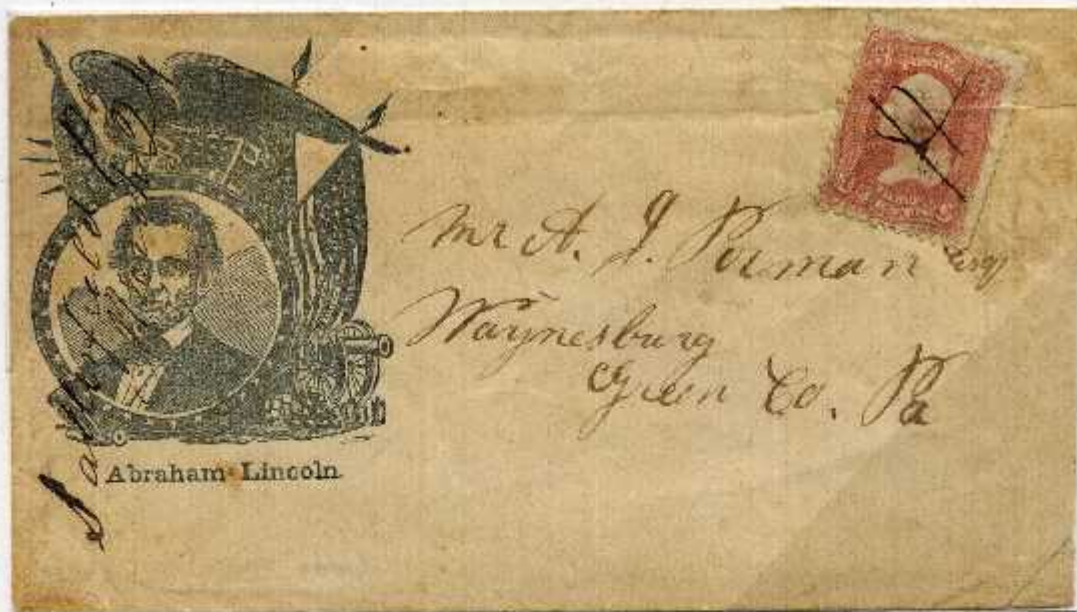 Abraham Lincoln.
Mr A. J. Purman Esq
Waynesburg
Green Co. Pa